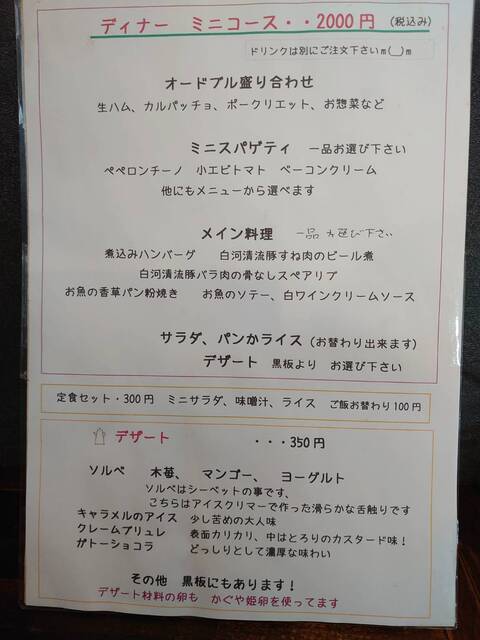 ディナー ミニコース・・2000円 (税込み)
ドリンクは別にご注文下さいm(__)m
オードブル盛り合わせ
生ハム、カルパッチョ、ポークリエット、お惣菜など
ミニスパゲティ 一品お選び下さい
ペペロンチーノ 小エビトマト ベーコンクリーム
他にもメニューから選べます
メイン料理 一品お選び下さい
煮込みハンバーグ 白河清流豚すね肉のビール煮
白河清流豚バラ肉の骨なしスペアリブ
お魚の香草パン粉焼き お魚のソテー、白ワインクリームソース
サラダ、パンかライス (お替わり出来ます)
デザート 黒板より お選び下さい
定食セット・300円 ミニサラダ、味噌汁、ライス ご飯お替わり100円
デザート ・・・350円
ソルベ 木苺、 マンゴー、 ヨーグルト
ソルベはシーベットの事です、
こちらはアイスクリマーで作った滑らかな舌触りです
キャラメルのアイス 少し苦めの大人味
クレームブリュレ 表面カリカリ、中はとろりのカスタード味!
ガトーショコラ どっしりとして濃厚な味わい
その他 黒板にもあります!
デザート材料の卵も かぐや姫卵を使ってます